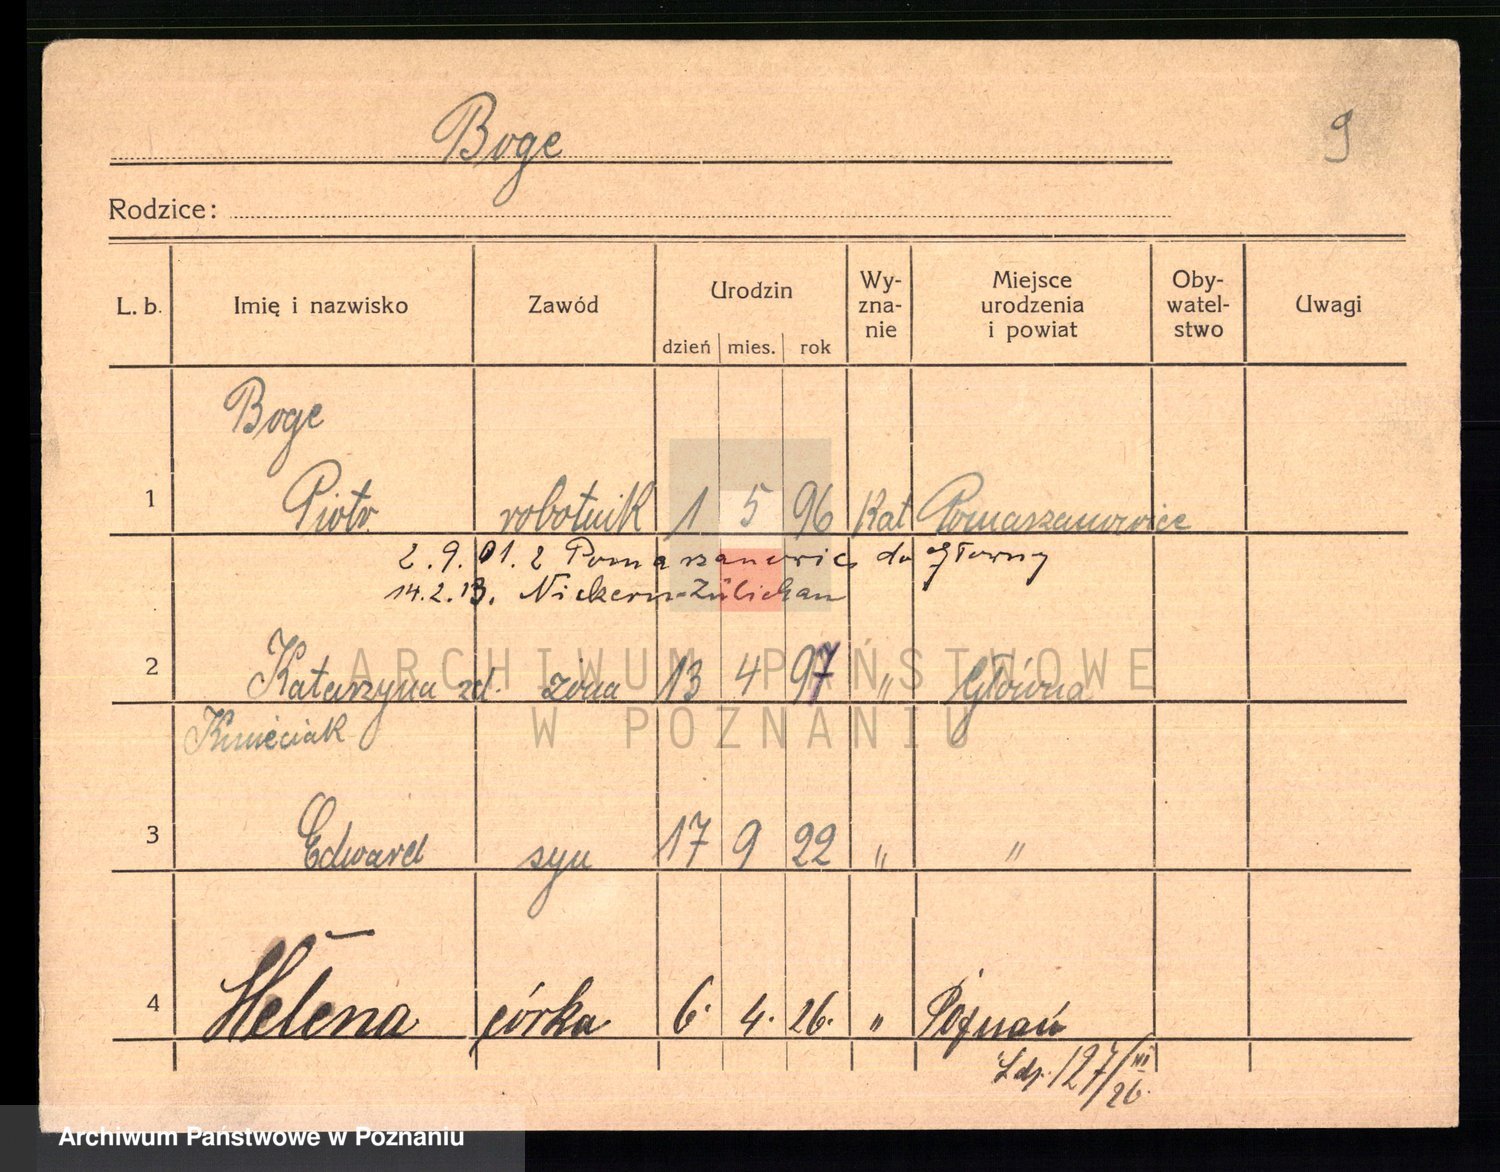 Boge
9
Rodzice:
L. b. Imię i nazwisko Zawód Urodzin dzień mies. rok Wy-zna-nie Miejsce urodzenia i powiat Oby-watel-stwo Uwagi
Boge
1 Piotr robotnik 1 5 96 Kat Pomarzanowice
2.9.01. z Pomarzanowic do Główny
14.2.13. Nickern-Züllichau
2 Katarzyna zd. żona 13 4 97 " Główna
Kmieciak
3 Edward syn 17 9 22 " "
4 Helena córka 6. 4. 26. " Poznań
127/VII 26.
ARCHIWUM PAŃSTWOWE
W POZNANIU
Archiwum Państwowe w Poznaniu